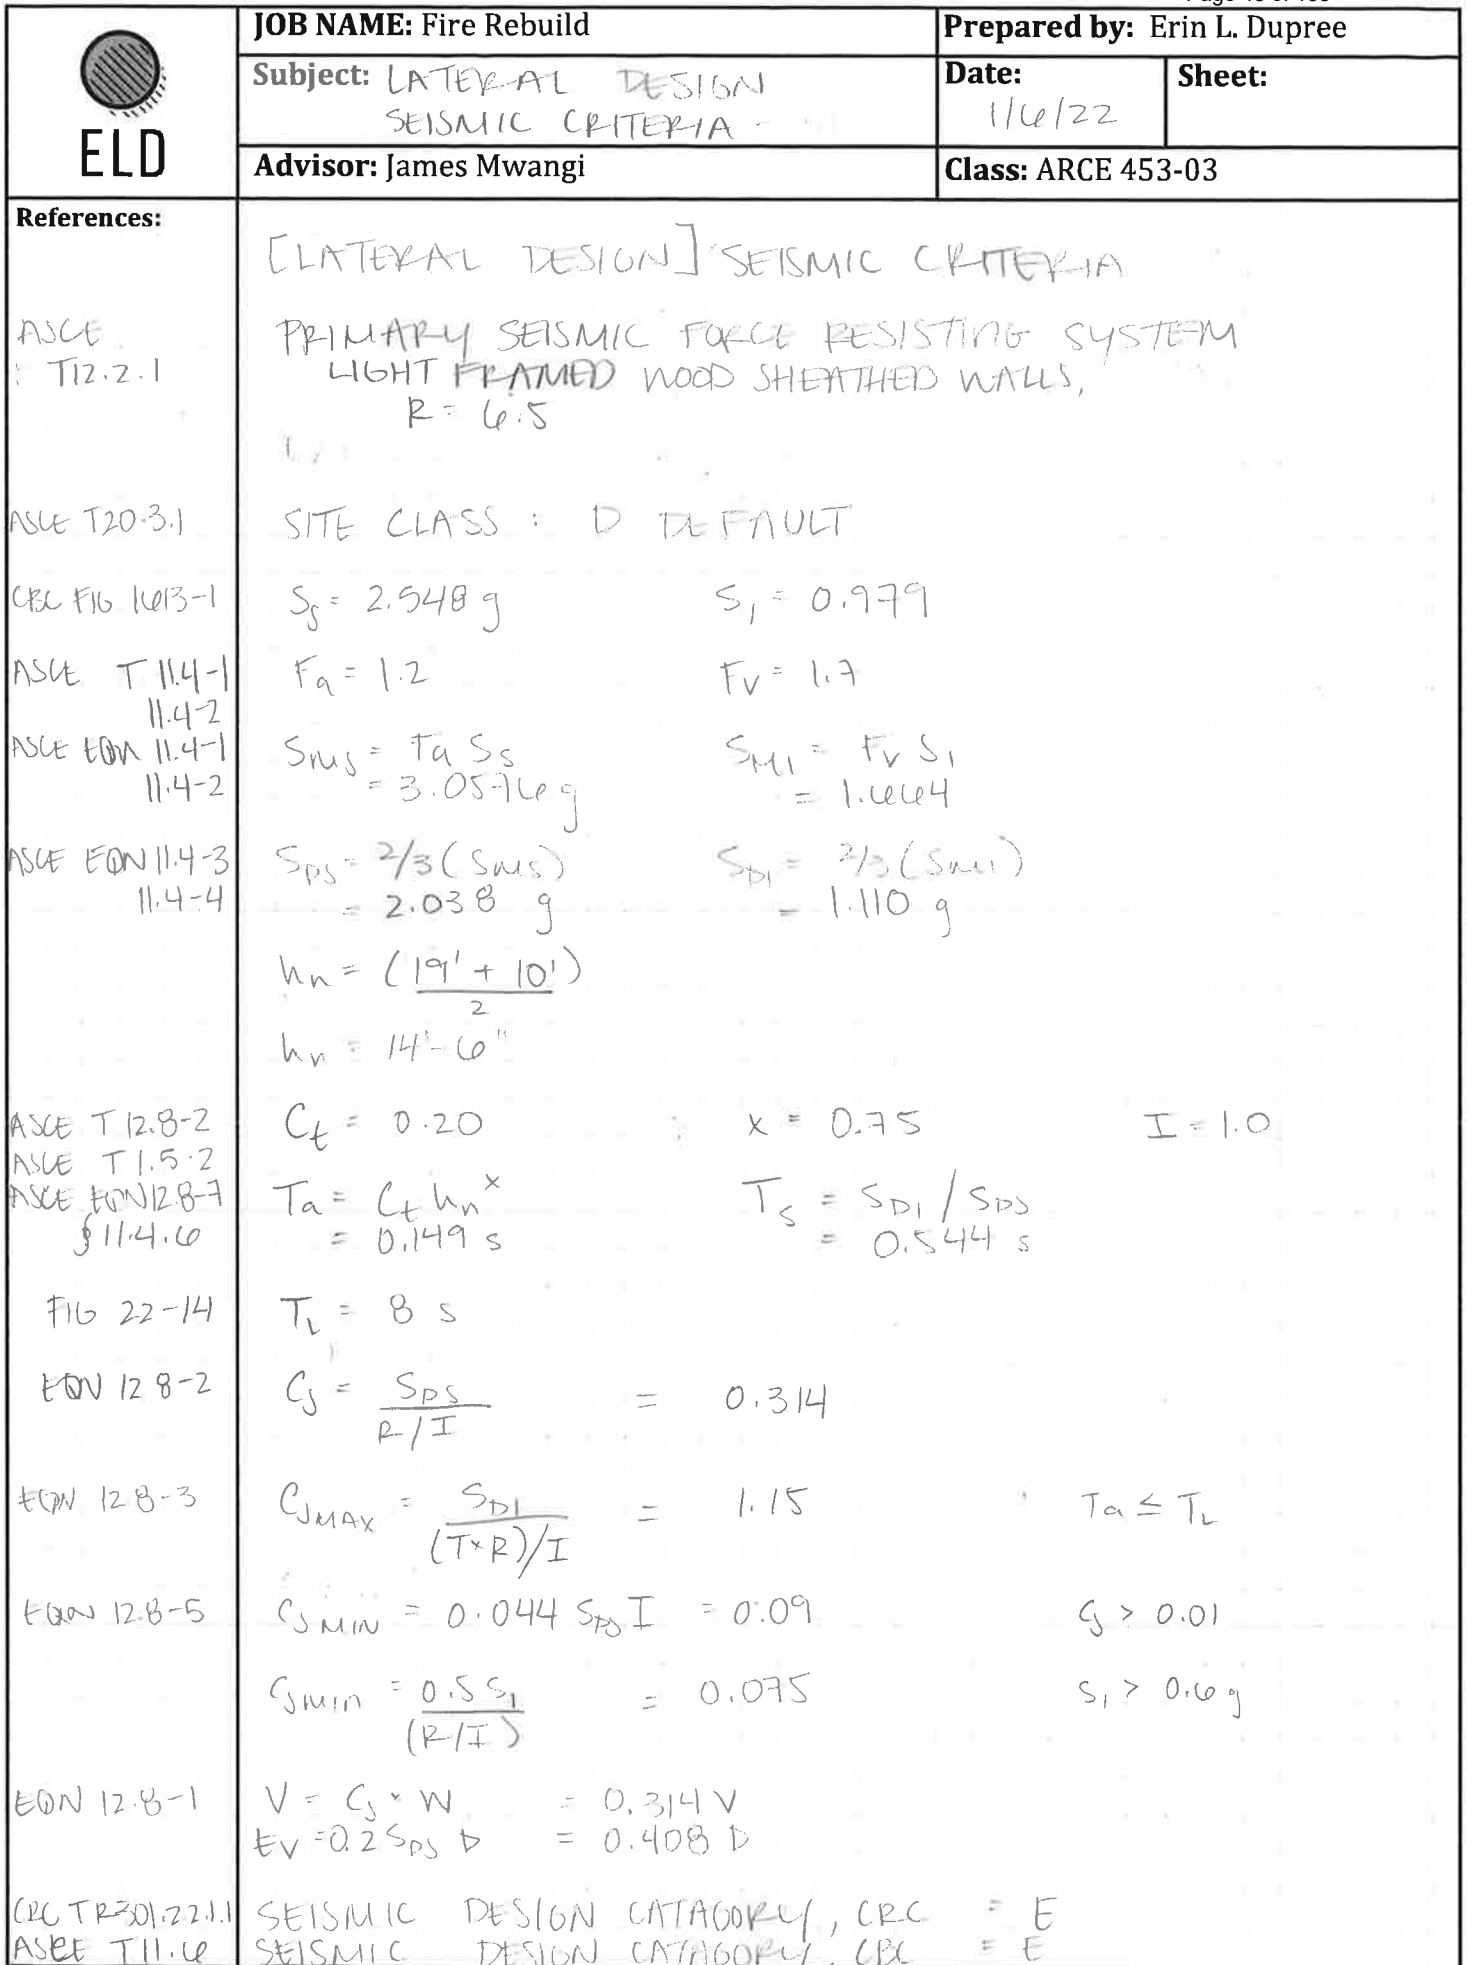 JOB NAME: Fire Rebuild
Prepared by: Erin L. Dupree
Subject: LATERAL DESIGN
SEISMIC CRITERIA
Date:
1/6/22
Sheet:
ELD
Advisor: James Mwangi
Class: ARCE 453-03
References:
[LATERAL DESIGN] SEISMIC CRITERIA
ASCE PRIMARY SEISMIC FORCE RESISTING SYSTEM
T12.2.1 LIGHT FRAMED WOOD SHEATHED WALLS,
R = 6.5
ASCE T20.3.1 SITE CLASS : D DEFAULT
CBC FIG 1613-1 Ss = 2.548 g S1 = 0.979
ASCE T 11.4-1 Fa = 1.2 Fv = 1.7
11.4-2
ASCE EQN 11.4-1 SMS = Fa Ss SM1 = Fv S1
11.4-2 = 3.0576 g = 1.664
ASCE EQN 11.4-3 SDS = 2/3 (SMS) SD1 = 2/3 (SM1)
11.4-4 = 2.038 g = 1.110 g
hn = (19' + 10')
2
hn = 14'-6"
ASCE T 12.8-2 Ct = 0.20 x = 0.75 I = 1.0
ASCE T 1.5-2
ASCE EQN 12.8-7 Ta = Ct hn^x Ts = SD1 / SDS
§ 11.4.6 = 0.149 s = 0.544 s
FIG 22-14 TL = 8 s
EQN 12 8-2 Cs = SDS = 0.314
R / I
EQN 12 8-3 CSMAX = SD1 = 1.15 Ta ≤ TL
(T×R)/I
EQN 12.8-5 CSMIN = 0.044 SDS I = 0.09 Cs > 0.01
CSMIN = 0.5 S1 = 0.075 S1 > 0.6 g
(R/I)
EQN 12.8-1 V = Cs × W = 0.314 V
EV = 0.2 SDS D = 0.408 D
CRC T R301.2.2.1.1 SEISMIC DESIGN CATAGORY, CRC = E
ASCE T11.6 SEISMIC DESIGN CATAGORY, CBC = E